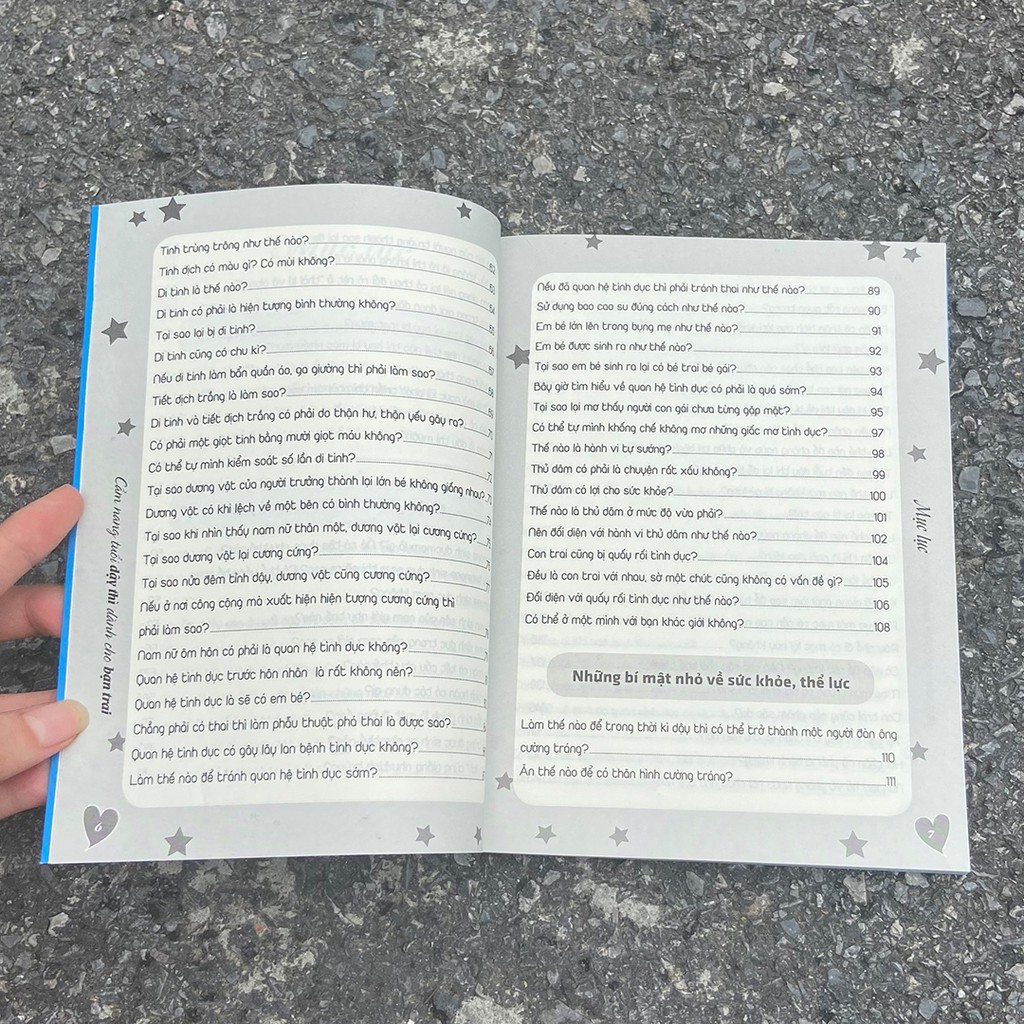 Tinh trùng trông như thế nào? 62
Tinh dịch có màu gì? Có mùi không? 63
Di tinh là thế nào? 64
Di tinh có phải là hiện tượng bình thường không? 65
Tại sao lại bị di tinh? 66
Di tinh cũng có chu kì? 67
Nếu di tinh làm bẩn quần áo, ga giường thì phải làm sao? 68
Tiết dịch trắng là làm sao? 69
Di tinh và tiết dịch trắng có phải do thận hư, thận yếu gây ra? 70
Có phải một giọt tinh bằng mười giọt máu không? 71
Có thể tự mình kiểm soát số lần di tinh? 72
Tại sao dương vật của người trưởng thành lại lớn bé không giống nhau?
Dương vật có khi lệch về một bên có bình thường không?
Tại sao khi nhìn thấy nam nữ thân mật, dương vật lại cương cứng?
Tại sao dương vật lại cương cứng?
Tại sao nửa đêm tỉnh dậy, dương vật cũng cương cứng?
Nếu ở nơi công cộng mà xuất hiện hiện tượng cương cứng thì
phải làm sao?
Nam nữ ôm hôn có phải là quan hệ tình dục không?
Quan hệ tình dục trước hôn nhân là rất không nên?
Quan hệ tình dục là sẽ có em bé?
Chẳng phải có thai thì làm phẫu thuật phá thai là được sao?
Quan hệ tình dục có gây lây lan bệnh tình dục không?
Làm thế nào để tránh quan hệ tình dục sớm?
Cẩm nang tuổi dậy thì dành cho bạn trai
6
Nếu đã quan hệ tình dục thì phải tránh thai như thế nào? 89
Sử dụng bao cao su đúng cách như thế nào? 90
Em bé lớn lên trong bụng mẹ như thế nào? 91
Em bé được sinh ra như thế nào? 92
Tại sao em bé sinh ra lại có bé trai bé gái? 93
Bây giờ tìm hiểu về quan hệ tình dục có phải là quá sớm? 94
Tại sao lại mơ thấy người con gái chưa từng gặp mặt? 95
Có thể tự mình khống chế không mơ những giấc mơ tình dục? 97
Thế nào là hành vi tự sướng? 98
Thủ dâm có phải là chuyện rất xấu không? 99
Thủ dâm có lợi cho sức khỏe? 100
Thế nào là thủ dâm ở mức độ vừa phải? 101
Nên đối diện với hành vi thủ dâm như thế nào? 102
Con trai cũng bị quấy rối tình dục? 104
Đều là con trai với nhau, sờ một chút cũng không có vấn đề gì? 105
Đối diện với quấy rối tình dục như thế nào? 106
Có thể ở một mình với bạn khác giới không? 108
Những bí mật nhỏ về sức khỏe, thể lực
Làm thế nào để trong thời kì dậy thì có thể trở thành một người đàn ông
cường tráng? 110
Ăn thế nào để có thân hình cường tráng? 111
Mục lục
7